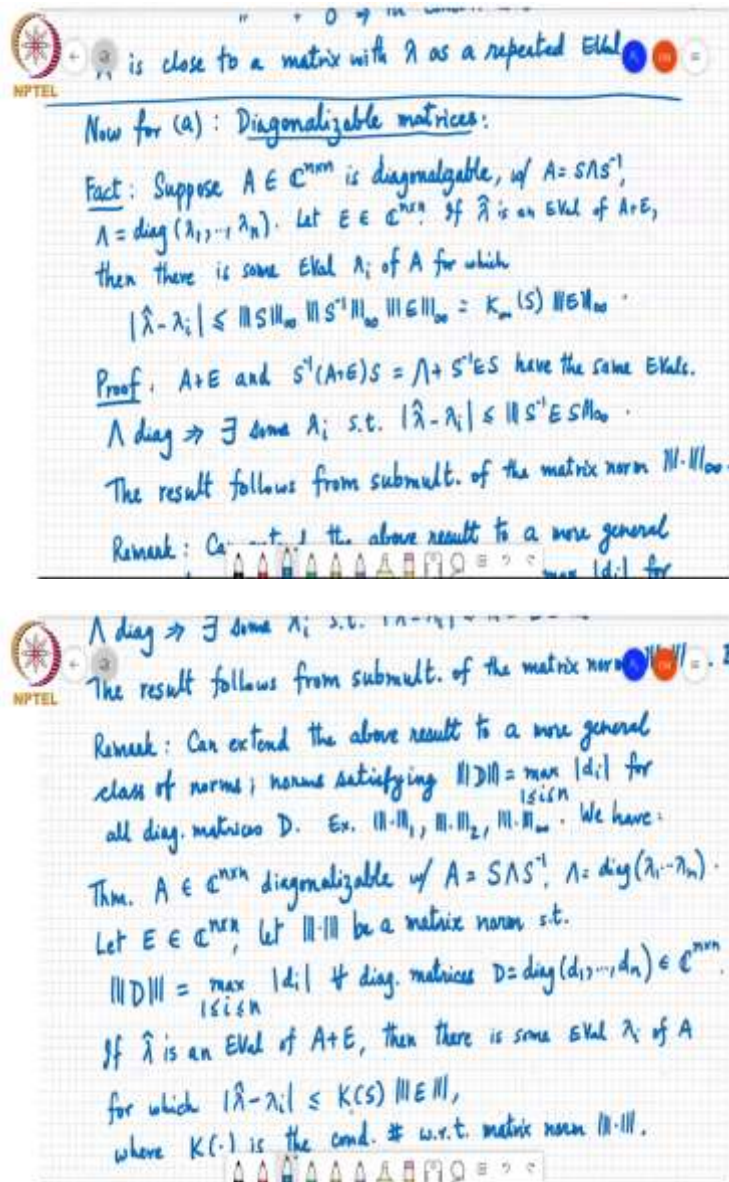 is close to a matrix with λ as a repeated EVal
NPTEL
Now for (a) : Diagonalizable matrices:
Fact : Suppose A ∈ ℂⁿˣⁿ is diagonalizable, w/ A = SΛS⁻¹,
Λ = diag (λ₁,..,λₙ). Let E ∈ ℂⁿˣⁿ. If λ̂ is an EVal of A+E,
then there is some EVal λᵢ of A for which
|λ̂ - λᵢ| ≤ |||S|||∞ |||S⁻¹|||∞ |||E|||∞ = K∞(S) |||E|||∞ .
Proof. A+E and S⁻¹(A+E)S = Λ + S⁻¹ES have the same EVals.
Λ diag ⇒ ∃ some λᵢ s.t. |λ̂ - λᵢ| ≤ |||S⁻¹ES|||∞ .
The result follows from submult. of the matrix norm |||·|||∞.
Remark : the above result to a more general
|dᵢ| for
Λ diag ⇒ ∃ some λᵢ s.t.
NPTEL
The result follows from submult. of the matrix norm
Remark : Can extend the above result to a more general
class of norms; norms satisfying |||D||| = max |dᵢ| for
1≤i≤n
all diag. matrices D. Ex. |||·|||₁, |||·|||₂, |||·|||∞ . We have:
Thm. A ∈ ℂⁿˣⁿ diagonalizable w/ A = SΛS⁻¹, Λ = diag(λ₁...λₙ).
Let E ∈ ℂⁿˣⁿ, let |||·||| be a matrix norm s.t.
|||D||| = max |dᵢ| ∀ diag. matrices D = diag(d₁,...,dₙ) ∈ ℂⁿˣⁿ.
1≤i≤n
If λ̂ is an EVal of A+E, then there is some EVal λᵢ of A
for which |λ̂ - λᵢ| ≤ K(S) |||E|||,
where K(·) is the cond. # w.r.t. matrix norm |||·|||.